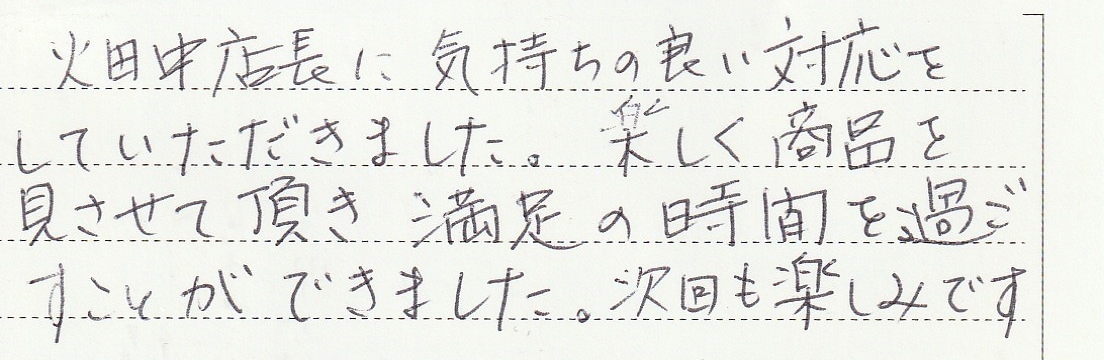 畑中店長に気持ちの良い対応を
していただきました。楽しく商品を
見させて頂き満足の時間を過ご
すことができました。次回も楽しみです